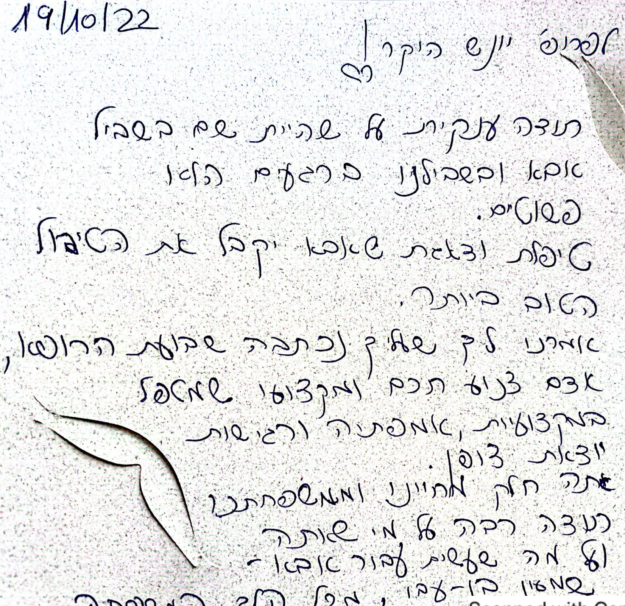 19/10/22
לפרופ' יונש היקר!
תודה ענקית על שהיית שם בשביל
אבא ובשבילנו ברגעים הלא
פשוטים.
טיפלת ודאגת שאבא יקבל את הטיפול
הטוב ביותר.
אמרנו לך שעליך נכתבה שבועת הרופא,
אדם צנוע חכם ומקצועי שמטפל
במקצועיות, אמפתיה ורגישות
יוצאת דופן.
אתה חלק מחיינו וממשפחתנו
תודה רבה על מי שאתה
ועל מה שעשית עבור אבא -
שמעון בן-עבו, מכל הלב המשפחה